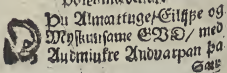 Þu Almattuge/Eilijfe og
Myskunsame GVD/ med
Audmiukre Andvarpan þa